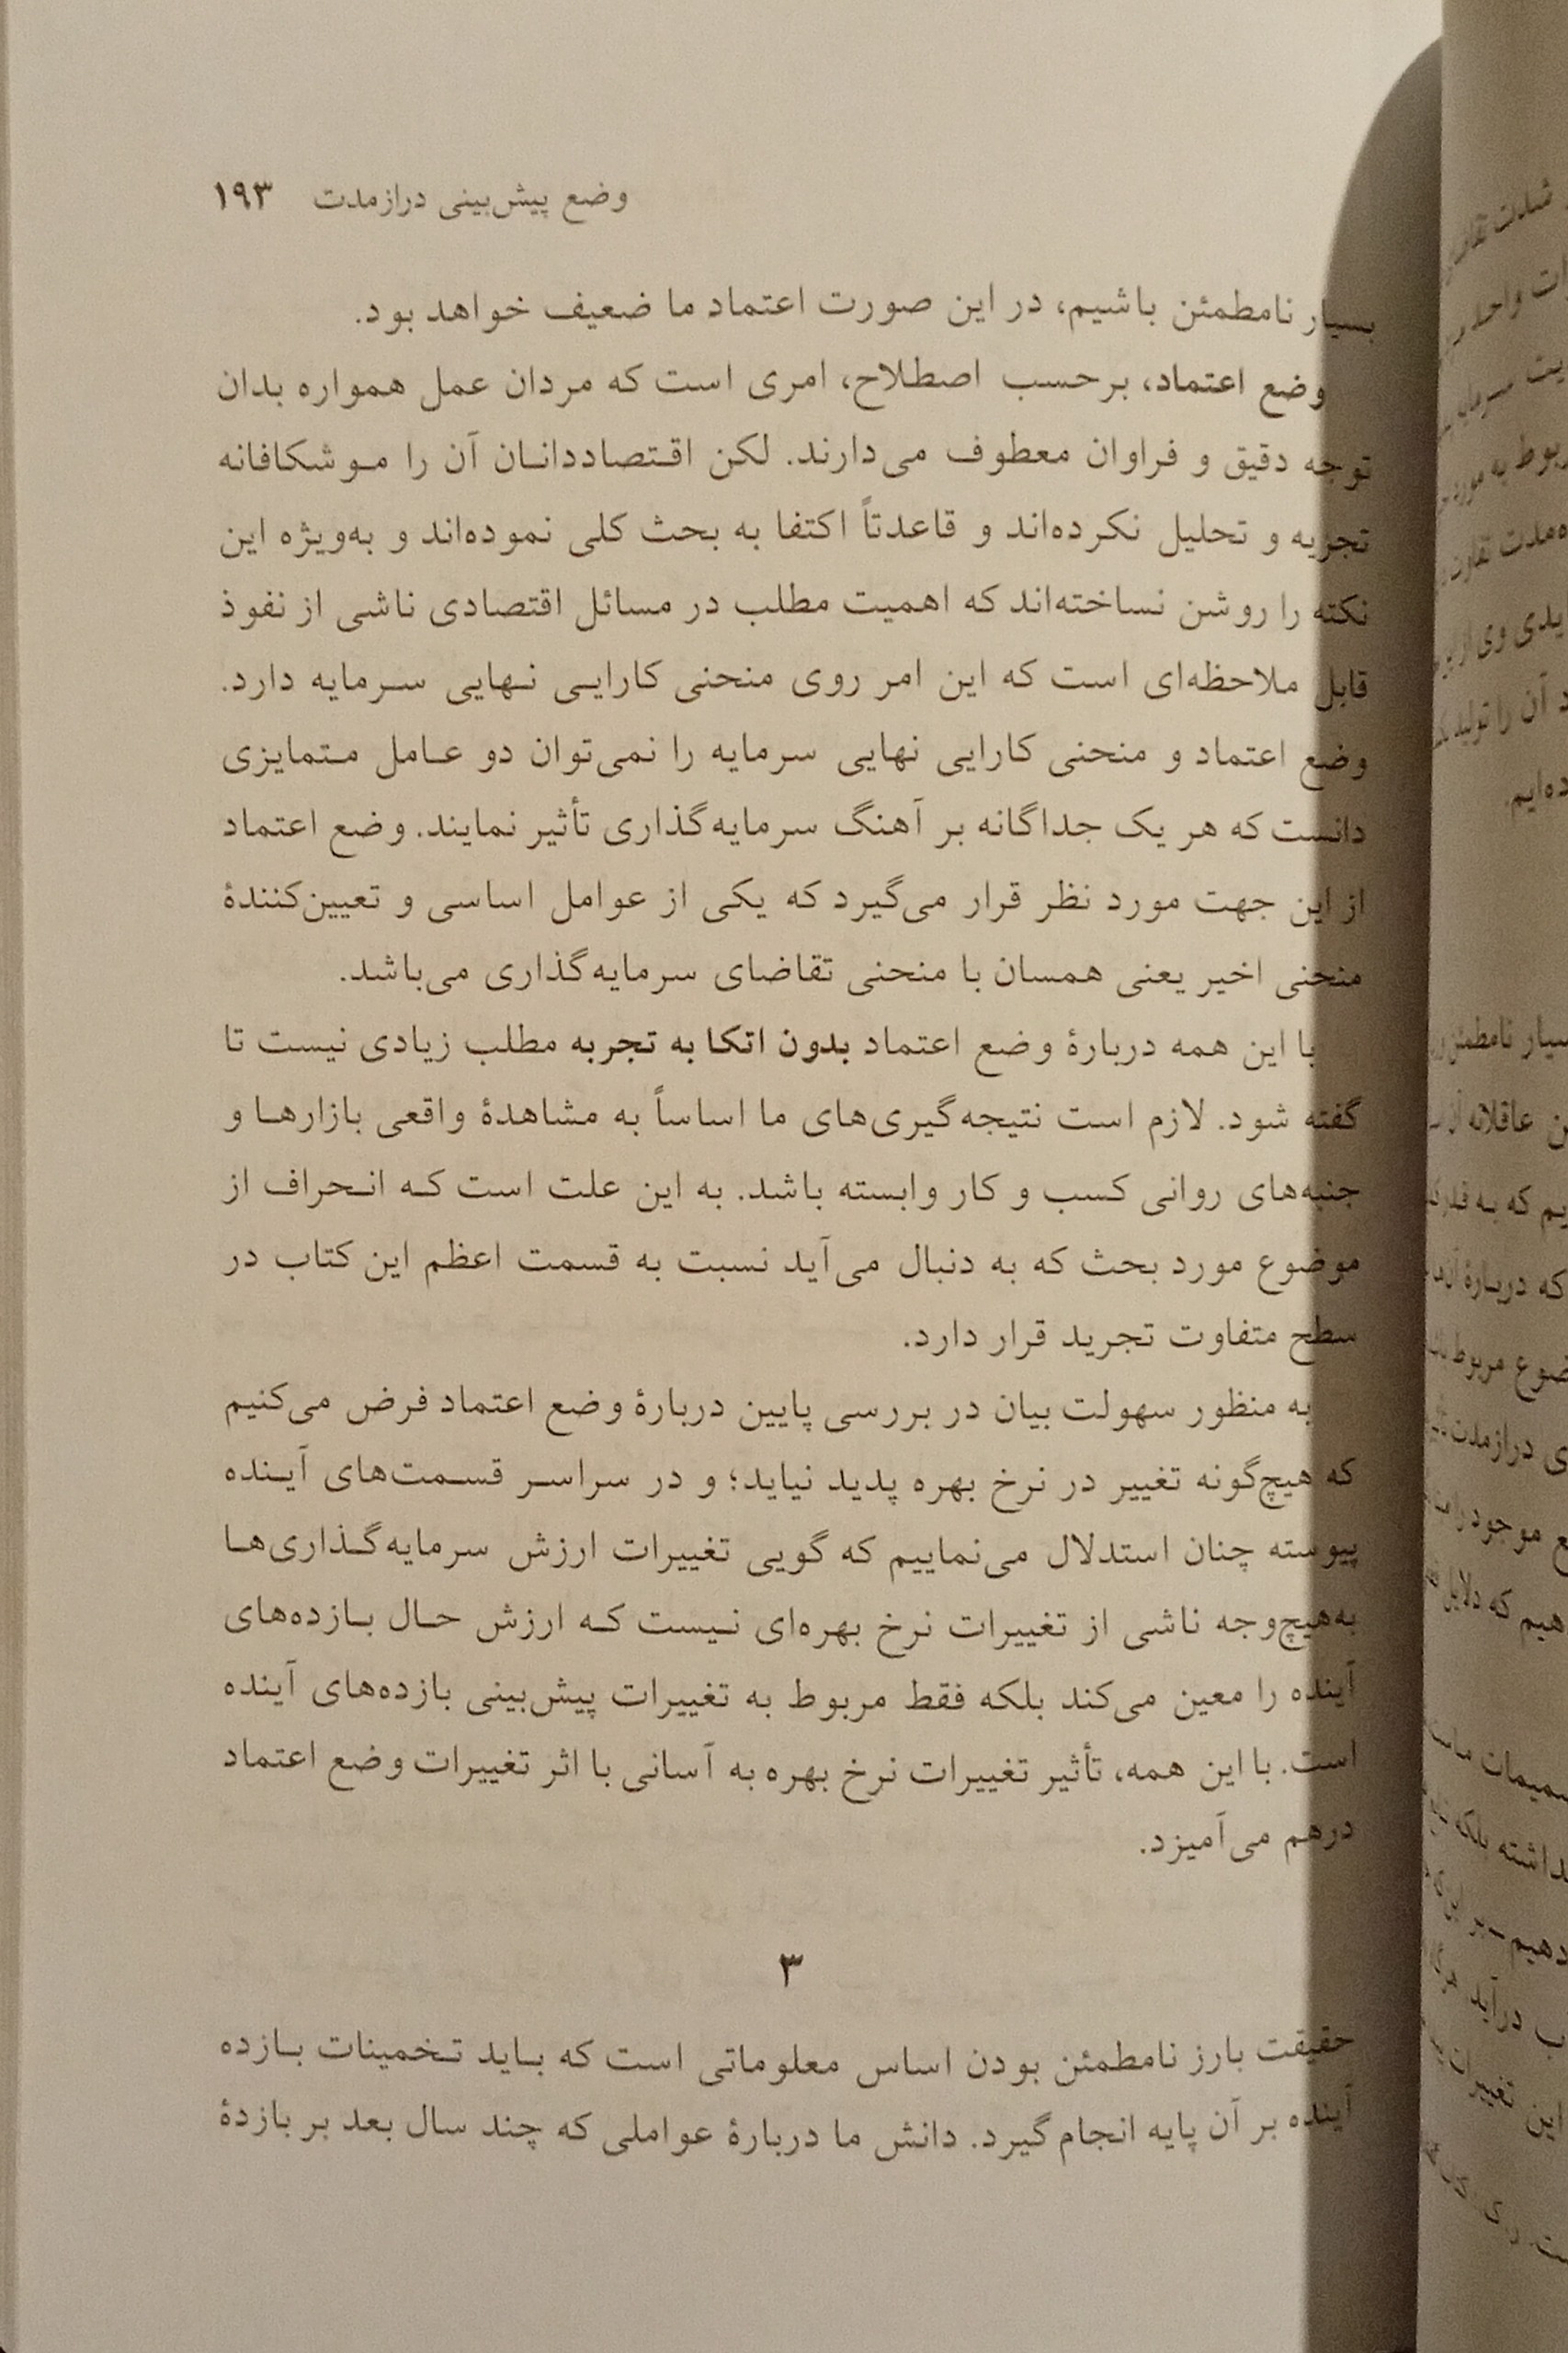 وضع پیش‌بینی درازمدت ۱۹۳
بسیار نامطمئن باشیم، در این صورت اعتماد ما ضعیف خواهد بود.
وضع اعتماد، برحسب اصطلاح، امری است که مردان عمل همواره بدان
توجه دقیق و فراوان معطوف می‌دارند. لکن اقتصاددانان آن را موشکافانه
تجزیه و تحلیل نکرده‌اند و قاعدتاً اکتفا به بحث کلی نموده‌اند و به‌ویژه این
نکته را روشن نساخته‌اند که اهمیت مطلب در مسائل اقتصادی ناشی از نفوذ
قابل ملاحظه‌ای است که این امر روی منحنی کارایی نهایی سرمایه دارد.
وضع اعتماد و منحنی کارایی نهایی سرمایه را نمی‌توان دو عامل متمایزی
دانست که هر یک جداگانه بر آهنگ سرمایه‌گذاری تأثیر نمایند. وضع اعتماد
از این جهت مورد نظر قرار می‌گیرد که یکی از عوامل اساسی و تعیین‌کنندهٔ
منحنی اخیر یعنی همسان با منحنی تقاضای سرمایه‌گذاری می‌باشد.
با این همه دربارهٔ وضع اعتماد بدون اتکا به تجربه مطلب زیادی نیست تا
گفته شود. لازم است نتیجه‌گیری‌های ما اساساً به مشاهدهٔ واقعی بازارها و
جنبه‌های روانی کسب و کار وابسته باشد. به این علت است که انحراف از
موضوع مورد بحث که به دنبال می‌آید نسبت به قسمت اعظم این کتاب در
سطح متفاوت تجرید قرار دارد.
به منظور سهولت بیان در بررسی پایین دربارهٔ وضع اعتماد فرض می‌کنیم
که هیچ‌گونه تغییر در نرخ بهره پدید نیاید؛ و در سراسر قسمت‌های آینده
پیوسته چنان استدلال می‌نماییم که گویی تغییرات ارزش سرمایه‌گذاری‌ها
به‌هیچ‌وجه ناشی از تغییرات نرخ بهره‌ای نیست که ارزش حال بازده‌های
آینده را معین می‌کند بلکه فقط مربوط به تغییرات پیش‌بینی بازده‌های آینده
است. با این همه، تأثیر تغییرات نرخ بهره به آسانی با اثر تغییرات وضع اعتماد
درهم می‌آمیزد.
۳
حقیقت بارز نامطمئن بودن اساس معلوماتی است که باید تخمینات بازده
آینده بر آن پایه انجام گیرد. دانش ما دربارهٔ عواملی که چند سال بعد بر بازدهٔ